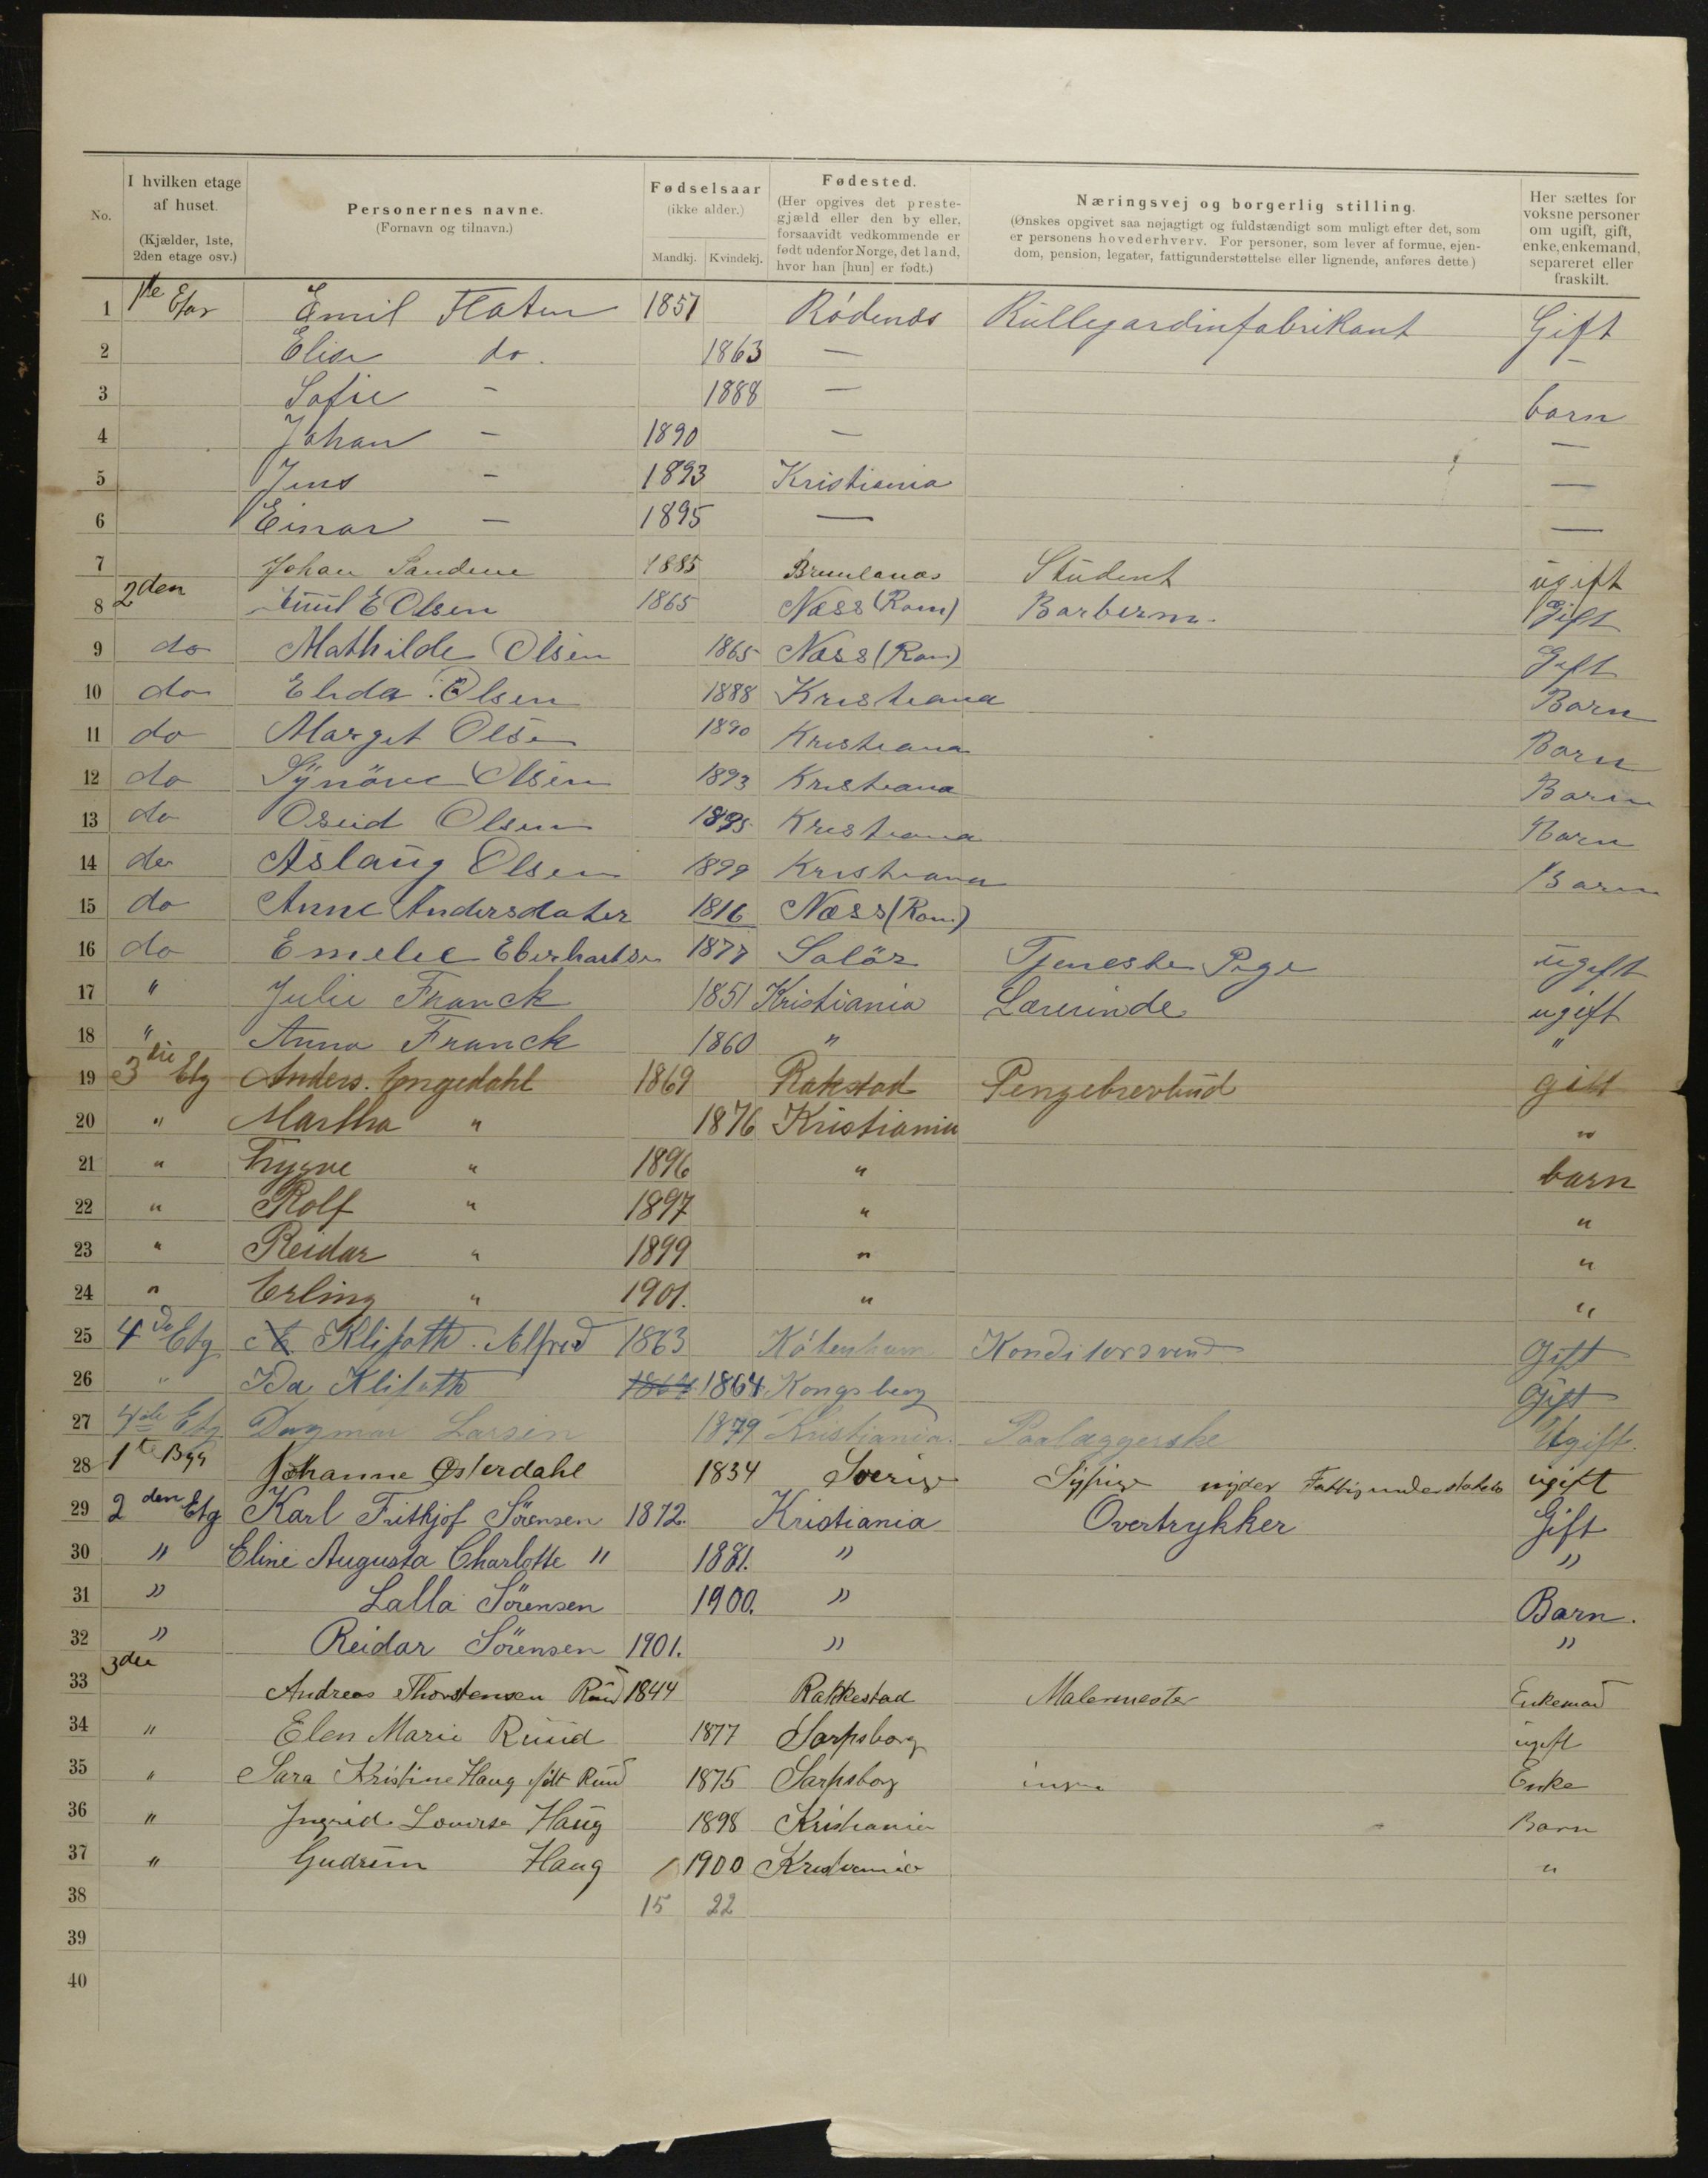 No.
I hvilken etage af huset. (Kjælder, 1ste, 2den etage osv.)
Personernes navne. (Fornavn og tilnavn.)
Fødselsaar (ikke alder.) Mandkj. Kvindekj.
Fødested. (Her opgives det preste- gjæld eller den by eller, forsaavidt vedkommende er født udenfor Norge, det land, hvor han [hun] er født.)
Næringsvej og borgerlig stilling. (Ønskes opgivet saa nøjagtigt og fuldstændigt som muligt efter det, som er personens hovederhverv. For personer, som lever af formue, ejen- dom, pension, legater, fattigunderstøttelse eller lignende, anføres dette.)
Her sættes for voksne personer om ugift, gift, enke, enkemand, separeret eller fraskilt.
1 1ste Emil Flaten 1857 Rødenæs Rullegardinfabrikant Gift
2 Elise do. 1863 — —
3 Sofie — 1888 — barn
4 Johan — 1890 — —
5 Jens — 1893 Kristiania —
6 Einar — 1895 — —
7 Johan Sandene 1885 Brunlanæs Student ugift
8 2den Emil E Olsen 1865 Næss (Rom) Barberm. Gift
9 do Mathilde Olsen 1865 Næss (Rom) Gift
10 do Elida Olsen 1888 Kristiana Barn
11 do Margit Olsen 1890 Kristiana Barn
12 do Synöve Olsen 1893 Kristiana Barn
13 do Olsen 1895 Kristiana Barn
14 do Aslaug Olsen 1899 Kristiana Barn
15 do Anne Andersdater 1816 Næss (Rom)
16 do Emelie Eberhardsen 1877 Solör Tjeneste Pige ugift
17 " Julie Franck 1851 Kristiania Lærerinde ugift
18 " Anna Franck 1860 " "
19 3die Etg Anders. Engedahl 1869 Rakstad Pengebrevbud gift
20 " Martha " 1876 Kristiania "
21 " Trygve " 1896 " barn
22 " Rolf " 1897 " "
23 " Reidar " 1899 " "
24 " Erling " 1901. " "
25 4de Etg Klifoth. Alfred 1863 København Konditorsvend Gift
26 " Ida Klifoth 1864 1864 Kongsberg Gift
27 4de Etg Dagmar Larsen 1879 Kristiania. Paalæggerske Ugift.
28 1ste Byg Johanne Østerdahl 1834 Sverige Sypige nyder Fattigunderstøttelse ugift
29 2den Etg Karl Frithjof Sörensen 1872. Kristiania Overtrykker Gift
30 " Eline Augusta Charlotte " 1881. " "
31 " Lalla Sörensen 1900. " Barn.
32 " Reidar Sörensen 1901. " "
33 3die Andreas Thorstensen Ruud 1844 Rakkestad Malermester Enkemand
34 " Elen Marie Ruud 1877 Sarpsborg ugift
35 " Sara Kristine Haug født Ruud 1875 Sarpsborg Enke
36 " Ingrid Lovise Haug 1898 Kristiania Barn
37 " Gudrun Haug 1900 Kristiania "
38 15 22
39
40